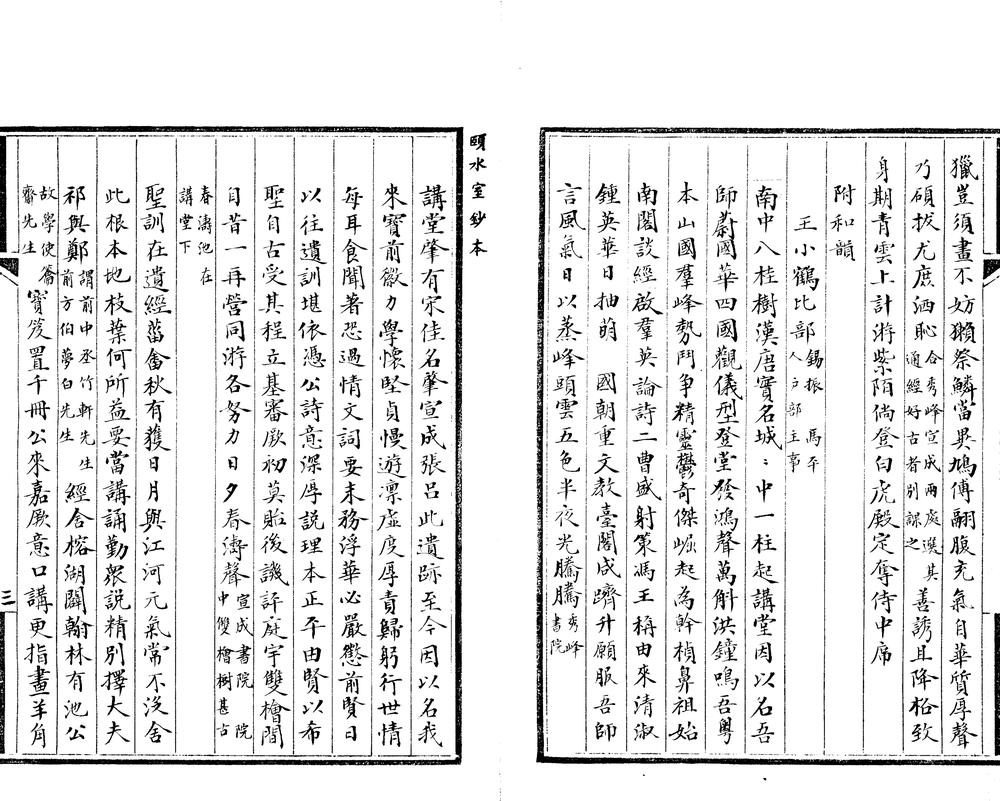 獵豈須畫不妨獺祭鱗當異鳩傳翮腹充氣自華質厚聲
乃碩拔尤庶洒恥合秀峰宣成兩處選其通經好古者別課之善誘且降格致
身期青雲上計游紫陌倘登白虎殿定奪侍中席
附和韻
王小鶴比部錫振馬平人戶部主事
南中八桂樹漢唐實名城:中一柱起講堂因以名吾
師蔚國華四國觀儀型登堂發鴻聲萬斛洪鐘鳴吾粵
本山國羣峰勢鬥爭精靈鬱奇傑崛起為幹楨鼻祖始
南閣談經啟羣英論詩二曹盛射策馮王稱由來清淑
鍾英華日抽萌 國朝重文教臺閣咸躋升願服吾師
言風氣日以蒸峰頭雲五色半夜光騰騰秀峰書院
頤水室鈔本
講堂肇有宋佳名肇宣成張呂此遺跡至今因以名我
來實前徽力學懷堅貞慢遊凛虛度厚責歸躬行世情
每耳食聞著恐過情文詞要末務浮華必嚴懲前賢日
以往遺訓堪依憑公詩意深厚說理本正平由賢以希
聖自古受其程立基審厥初莫貽後譏評庭宇雙檜間
目昔一再營同游各努力日夕春濤聲宣成書院院中雙檜樹甚古
春濤池在講堂下
聖訓在遺經菑畬秋有獲日月與江河元氣常不沒舍
此根本地枝葉何所益要當講誦勤眾說精別擇大夫
祁與鄭謂前中丞竹軒先生前方伯夢白先生經舍榕湖闢翰林有池公
故學使籥齋先生寶笈置千冊公來嘉厥意口講更指畫羊角
三